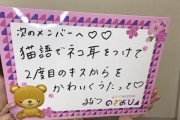 次のメンバーへ♡♡
猫語でネコ耳をつけて
2度目のキスからを
かわいくうたって♡
みなつ
のぎおび